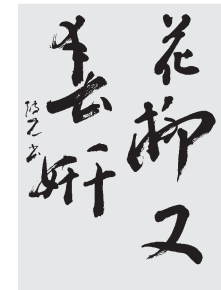 花柳又
春妍